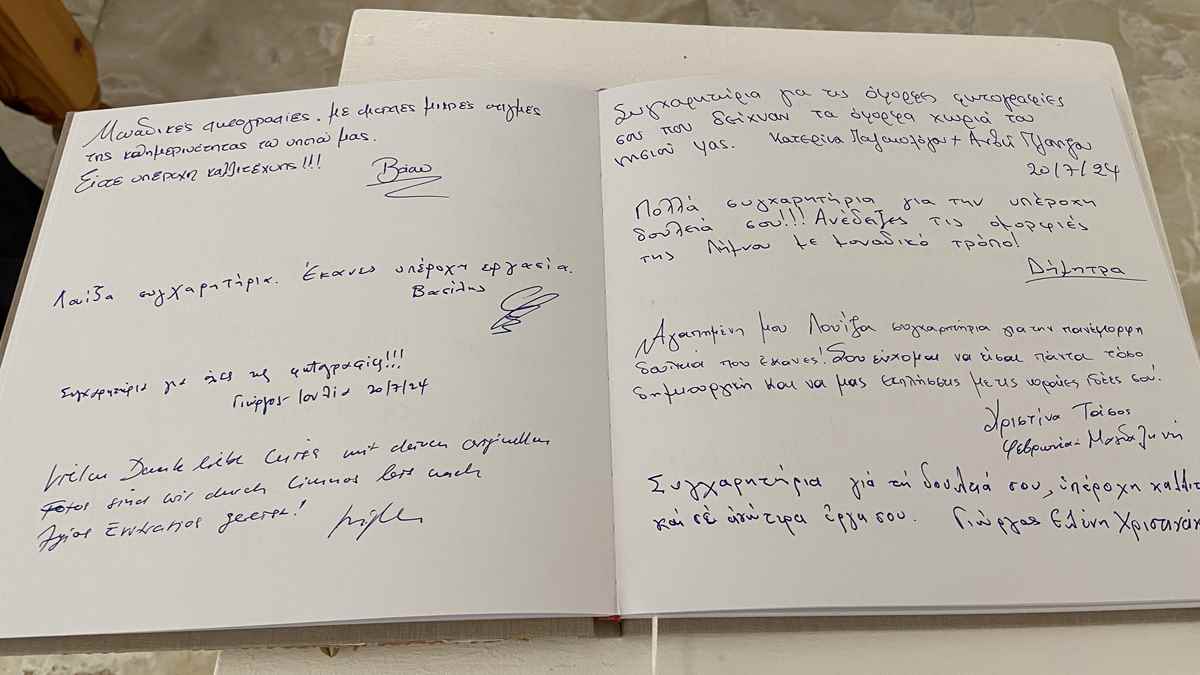 Μοναδικές φωτογραφίες. με μικρές στιγμές
της καθημερινότητας του νησιού μας.
Είστε υπέροχη καλλιτέχνης!!!
Λουίζα συγχαρητήρια. Έκανες υπέροχη εργασία.
Βασίλης
Συγχαρητήρια για όλες τις φωτογραφίες!!!
Γιώργος - Ιουλία 20/7/24
Vielen Dank liebe mit deinen originellen
Fotos sind wir durch Limnos bist nach
Άγιος Ευστράτιος gereist!
Συγχαρητήρια για τις όμορφες φωτογραφίες
σου που δείχναν τα όμορφα χωριά του
νησιού μας. Κατερίνα Παλαιολόγου +
20/7/24
Πολλά συγχαρητήρια για την υπέροχη
δουλειά σου!!! Ανέδειξες τις ομορφιές
της Λήμνου με μοναδικό τρόπο!
Δήμητρα
Αγαπημένη μου Λουίζα συγχαρητήρια για την πανέμορφη
δουλειά που έκανες! Σου εύχομαι να είσαι πάντα τόσο
δημιουργική και να μας εκπλήσσεις με τις ωραίες ιδέες σου!
Χριστίνα Τσίσος
Φεβρωνία
Συγχαρητήρια γιά τή δουλειά σου, ὑπέροχη καλλιτ
καί σέ ἀνώτερα ἔργα σου. Γιώργος Ελένη